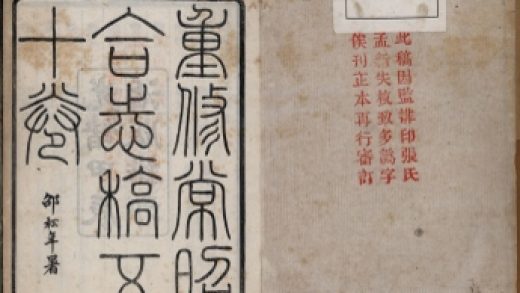 此稿因監排印張氏
孟晉失校致多譌字
俟刊正本再行審訂
重修常昭
合志稿五
十卷
邵松年署